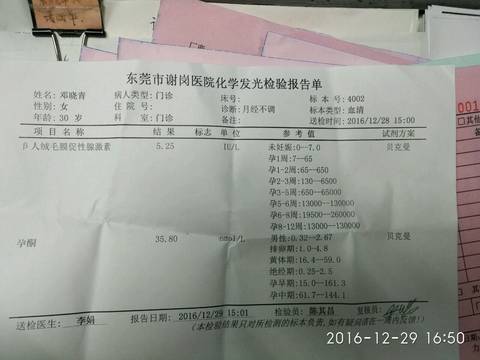 东莞市谢岗医院化学发光检验报告单
姓名：邓晓青 病人类型：门诊 床号： 标 本 号：4002
性别：女 住 院 号： 诊断：月经不调 标本类型：血清
年龄：30 岁 科 室：门诊 备注： 送检时间：2016/12/28 15:00
项 目 名 称 结 果 标志 单 位 参 考 值 试剂方案
β人绒毛膜促性腺激素 5.25 IU/L 未妊娠:0--7.0 贝克曼
孕1周:7--65
孕1-2周:65--650
孕2-3周:130--6500
孕3-5周:650--65000
孕5-6周:13000--130000
孕6-8周:19500--260000
孕8-12周:13000--130000
孕酮 35.80 nmol/L 男性:0.32--2.67 贝克曼
排卵期:1.0-4.8
黄体期:16.4--59.0
绝经期:0.25-2.5
孕早期:15.0--161.3
孕中期:61.7--144.1
送检医生：李娟 报告日期：2016/12/29 15:01 检验员：陈其昌 复核员：
(本检验结果只对所检测的标本负责,如有疑问请在一周内反馈!)
001
其他
2016-12-29 16:50